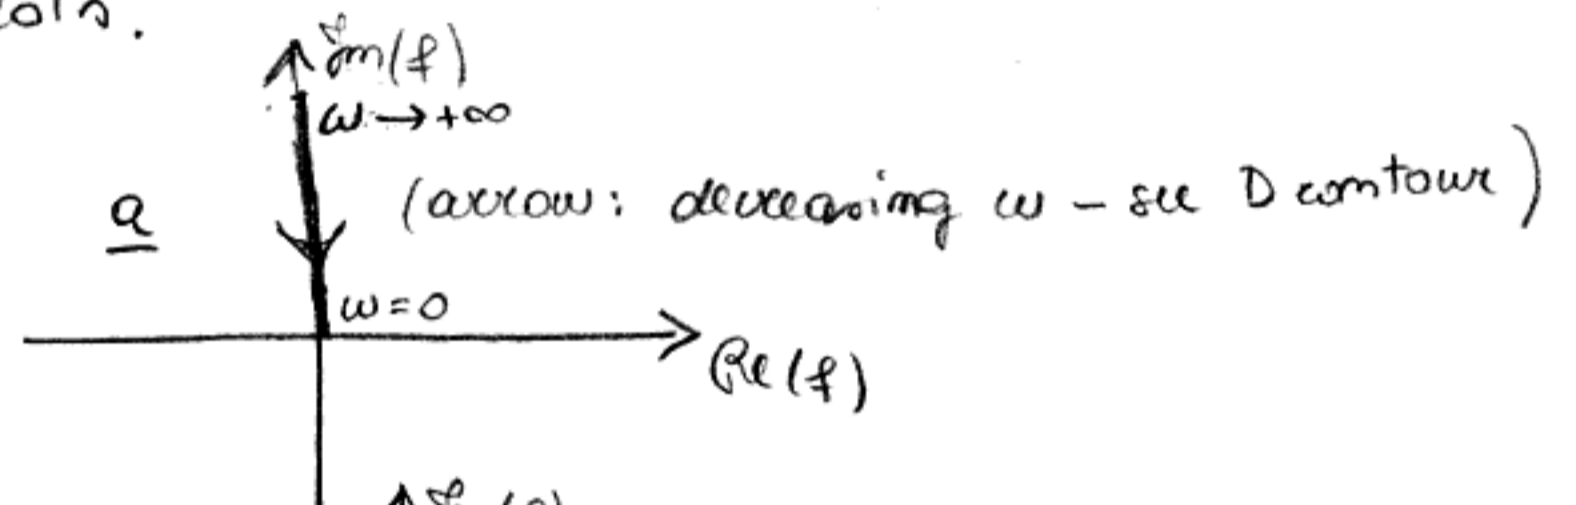 Im(f)
ω → +∞
a (arrow: decreasing ω - see D contour)
ω = 0
Re(f)